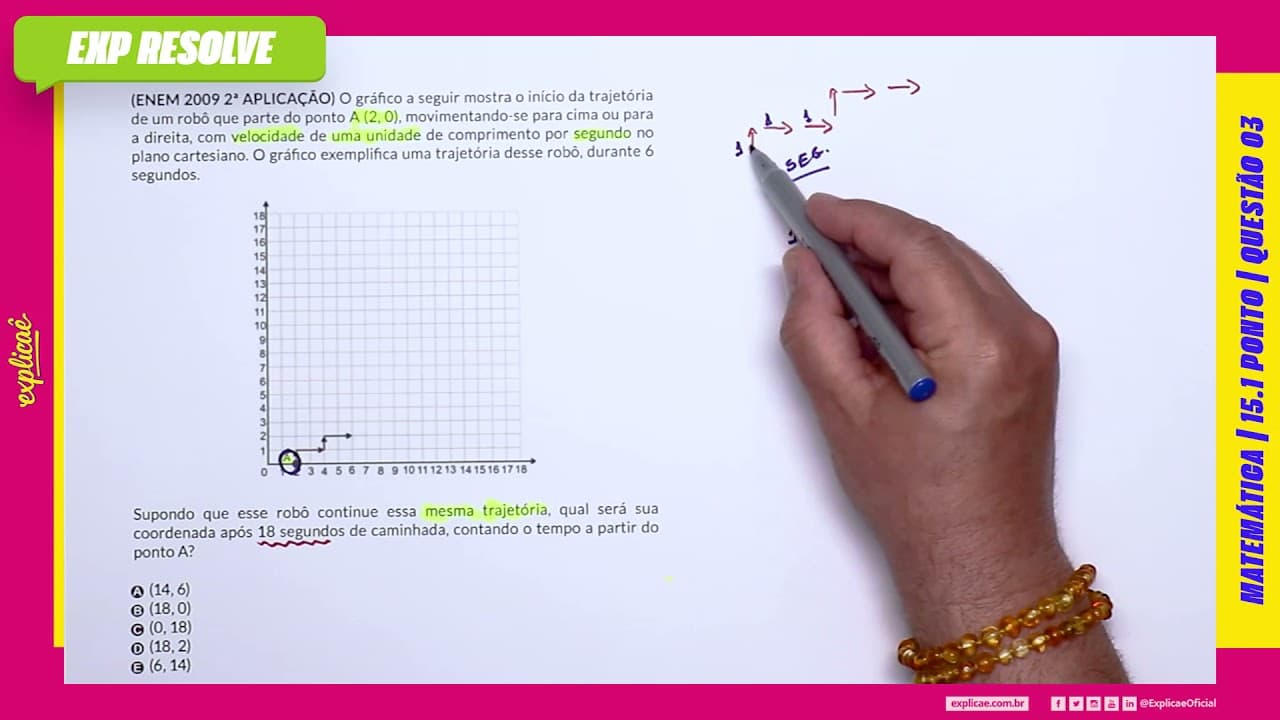 EXP RESOLVE
(ENEM 2009 2ª APLICAÇÃO) O gráfico a seguir mostra o início da trajetória
de um robô que parte do ponto A (2, 0), movimentando-se para cima ou para
a direita, com velocidade de uma unidade de comprimento por segundo no
plano cartesiano. O gráfico exemplifica uma trajetória desse robô, durante 6
segundos.
18
17
16
15
14
13
12
11
10
9
8
7
6
5
4
3
2
1
A
0 3 4 5 6 7 8 9 10 11 12 13 14 15 16 17 18
Supondo que esse robô continue essa mesma trajetória, qual será sua
coordenada após 18 segundos de caminhada, contando o tempo a partir do
ponto A?
A (14, 6)
B (18, 0)
C (0, 18)
D (18, 2)
E (6, 14)
1 1
1
SEG.
explicaê
MATEMÁTICA | 15.1 PONTO | QUESTÃO 03
explicae.com.br
@ExplicaeOficial